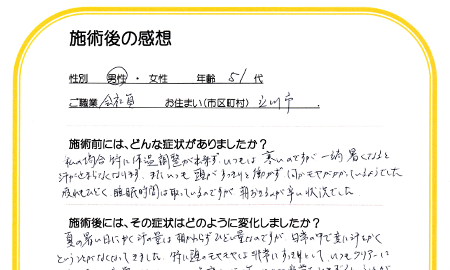 施術後の感想
性別 男性・女性 年齢 51 代
ご職業 会社員 お住まい(市区町村) 立川市.
施術前には、どんな症状がありましたか?
私の場合 特に体温調整が出来ず、いつもは寒いのですが一端暑くなると
汗が止まらなくなります。またいつも頭がすっきりと働かず何かモヤがかかっているようでした
疲れもひどく、睡眠時間は取っているのですが朝おきるのが辛い状況でした。
施術後には、その症状はどのように変化しましたか?
夏の暑い日に歩く汗の量は相かわらずひどい量なのですが、日常の中で変に汗をかく
ということがなくなってきました。特に頭のモヤモヤは非常にすっきりして、いつもクリアーに